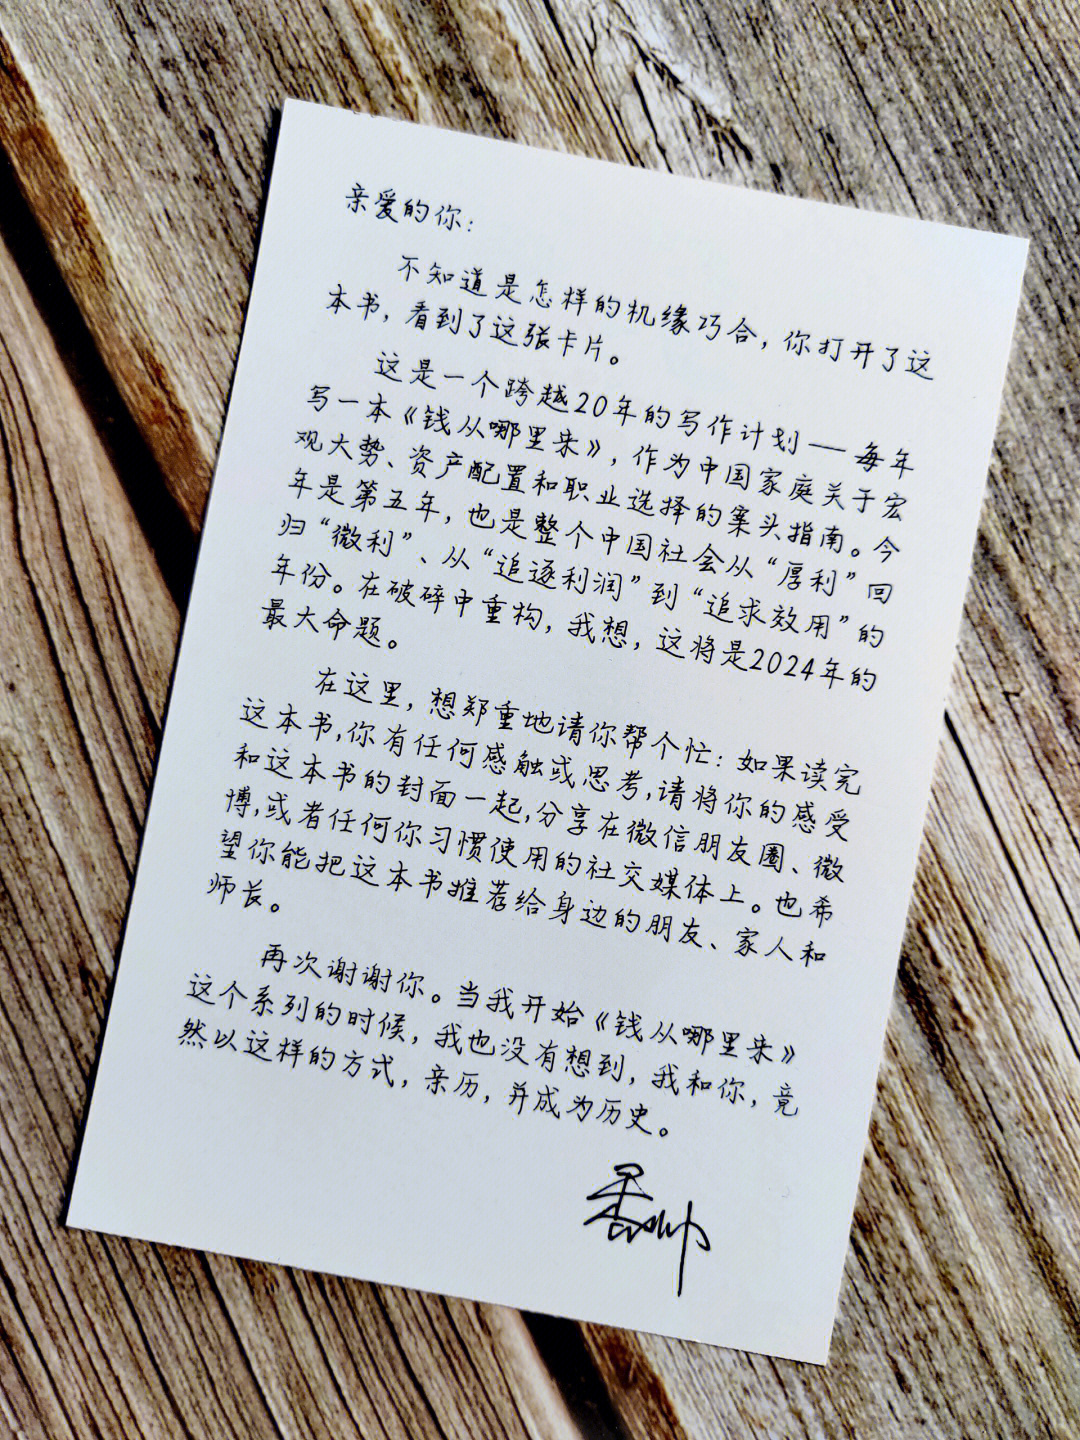 亲爱的你：
不知道是怎样的机缘巧合，你打开了这
本书，看到了这张卡片。
这是一个跨越20年的写作计划——每年
写一本《钱从哪里来》，作为中国家庭关于宏
观大势、资产配置和职业选择的案头指南。今
年是第五年，也是整个中国社会从“厚利”回
归“微利”、从“追逐利润”到“追求效用”的
年份。在破碎中重构，我想，这将是2024年的
最大命题。
在这里，想郑重地请你帮个忙：如果读完
这本书，你有任何感触或思考，请将你的感受
和这本书的封面一起，分享在微信朋友圈、微
博，或者任何你习惯使用的社交媒体上。也希
望你能把这本书推荐给身边的朋友、家人和
师长。
再次谢谢你。当我开始《钱从哪里来》
这个系列的时候，我也没有想到，我和你，竟
然以这样的方式，亲历，并成为历史。
香帅